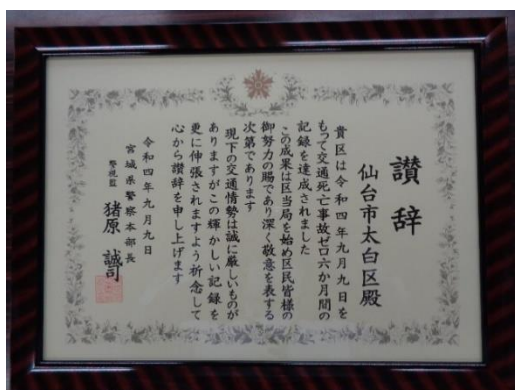 讃辞
仙台市太白区殿
貴区は令和四年九月九日を
もって交通死亡事故ゼロ六か月間の
記録を達成されました
この成果は区当局を始め区民皆様の
御努力の賜であり深く敬意を表する
次第であります
現下の交通情勢は誠に厳しいものが
ありますがこの輝かしい記録を
更に伸張されますよう祈念して
心から讃辞を申し上げます
令和四年九月九日
宮城県警察本部長
警視監 猪原誠司